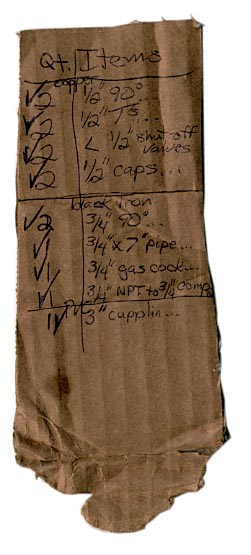 Qt. Items
copper
✓2 1/2" 90°...
✓2 1/2" T's...
✓2 < 1/2" shut-off valves
✓2 1/2" caps...
black iron
✓2 3/4" 90°...
✓1 3/4" x 7" pipe...
✓1 3/4" gas cock...
✓1 3/4" NPT to 3/4" comp
PVC
1 3" cupplin...